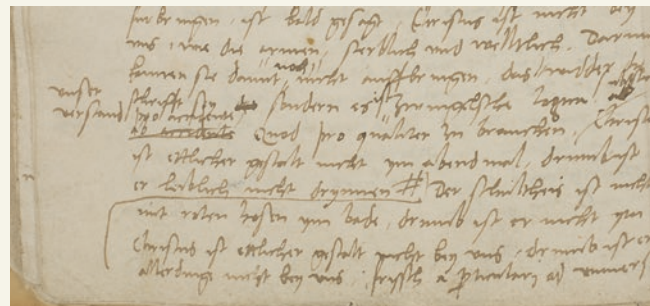 furbringen, ist bald gesagt, Christus ist nicht bey
uns, wie die armen, sterblich und welltlich. Darumb
konnen sie damit noch nicht auffbringen, das widder die
unser verstand
schrifft sey sondern es ist Zwingelsche
pro accidente
Quod pro qualiter zu brauchen, Christus
ist ettlicher gestalt nicht ym abendmal, drumb ist
er leiblich nicht drynnen # Der schultheis ist nicht
mit roten hosen ym bade, drumb ist er nicht ym
Christus ist ettlicher gestalt nicht bey uns, drumb ist er
allerdinge nicht bey uns, frissch a particulari ad univers